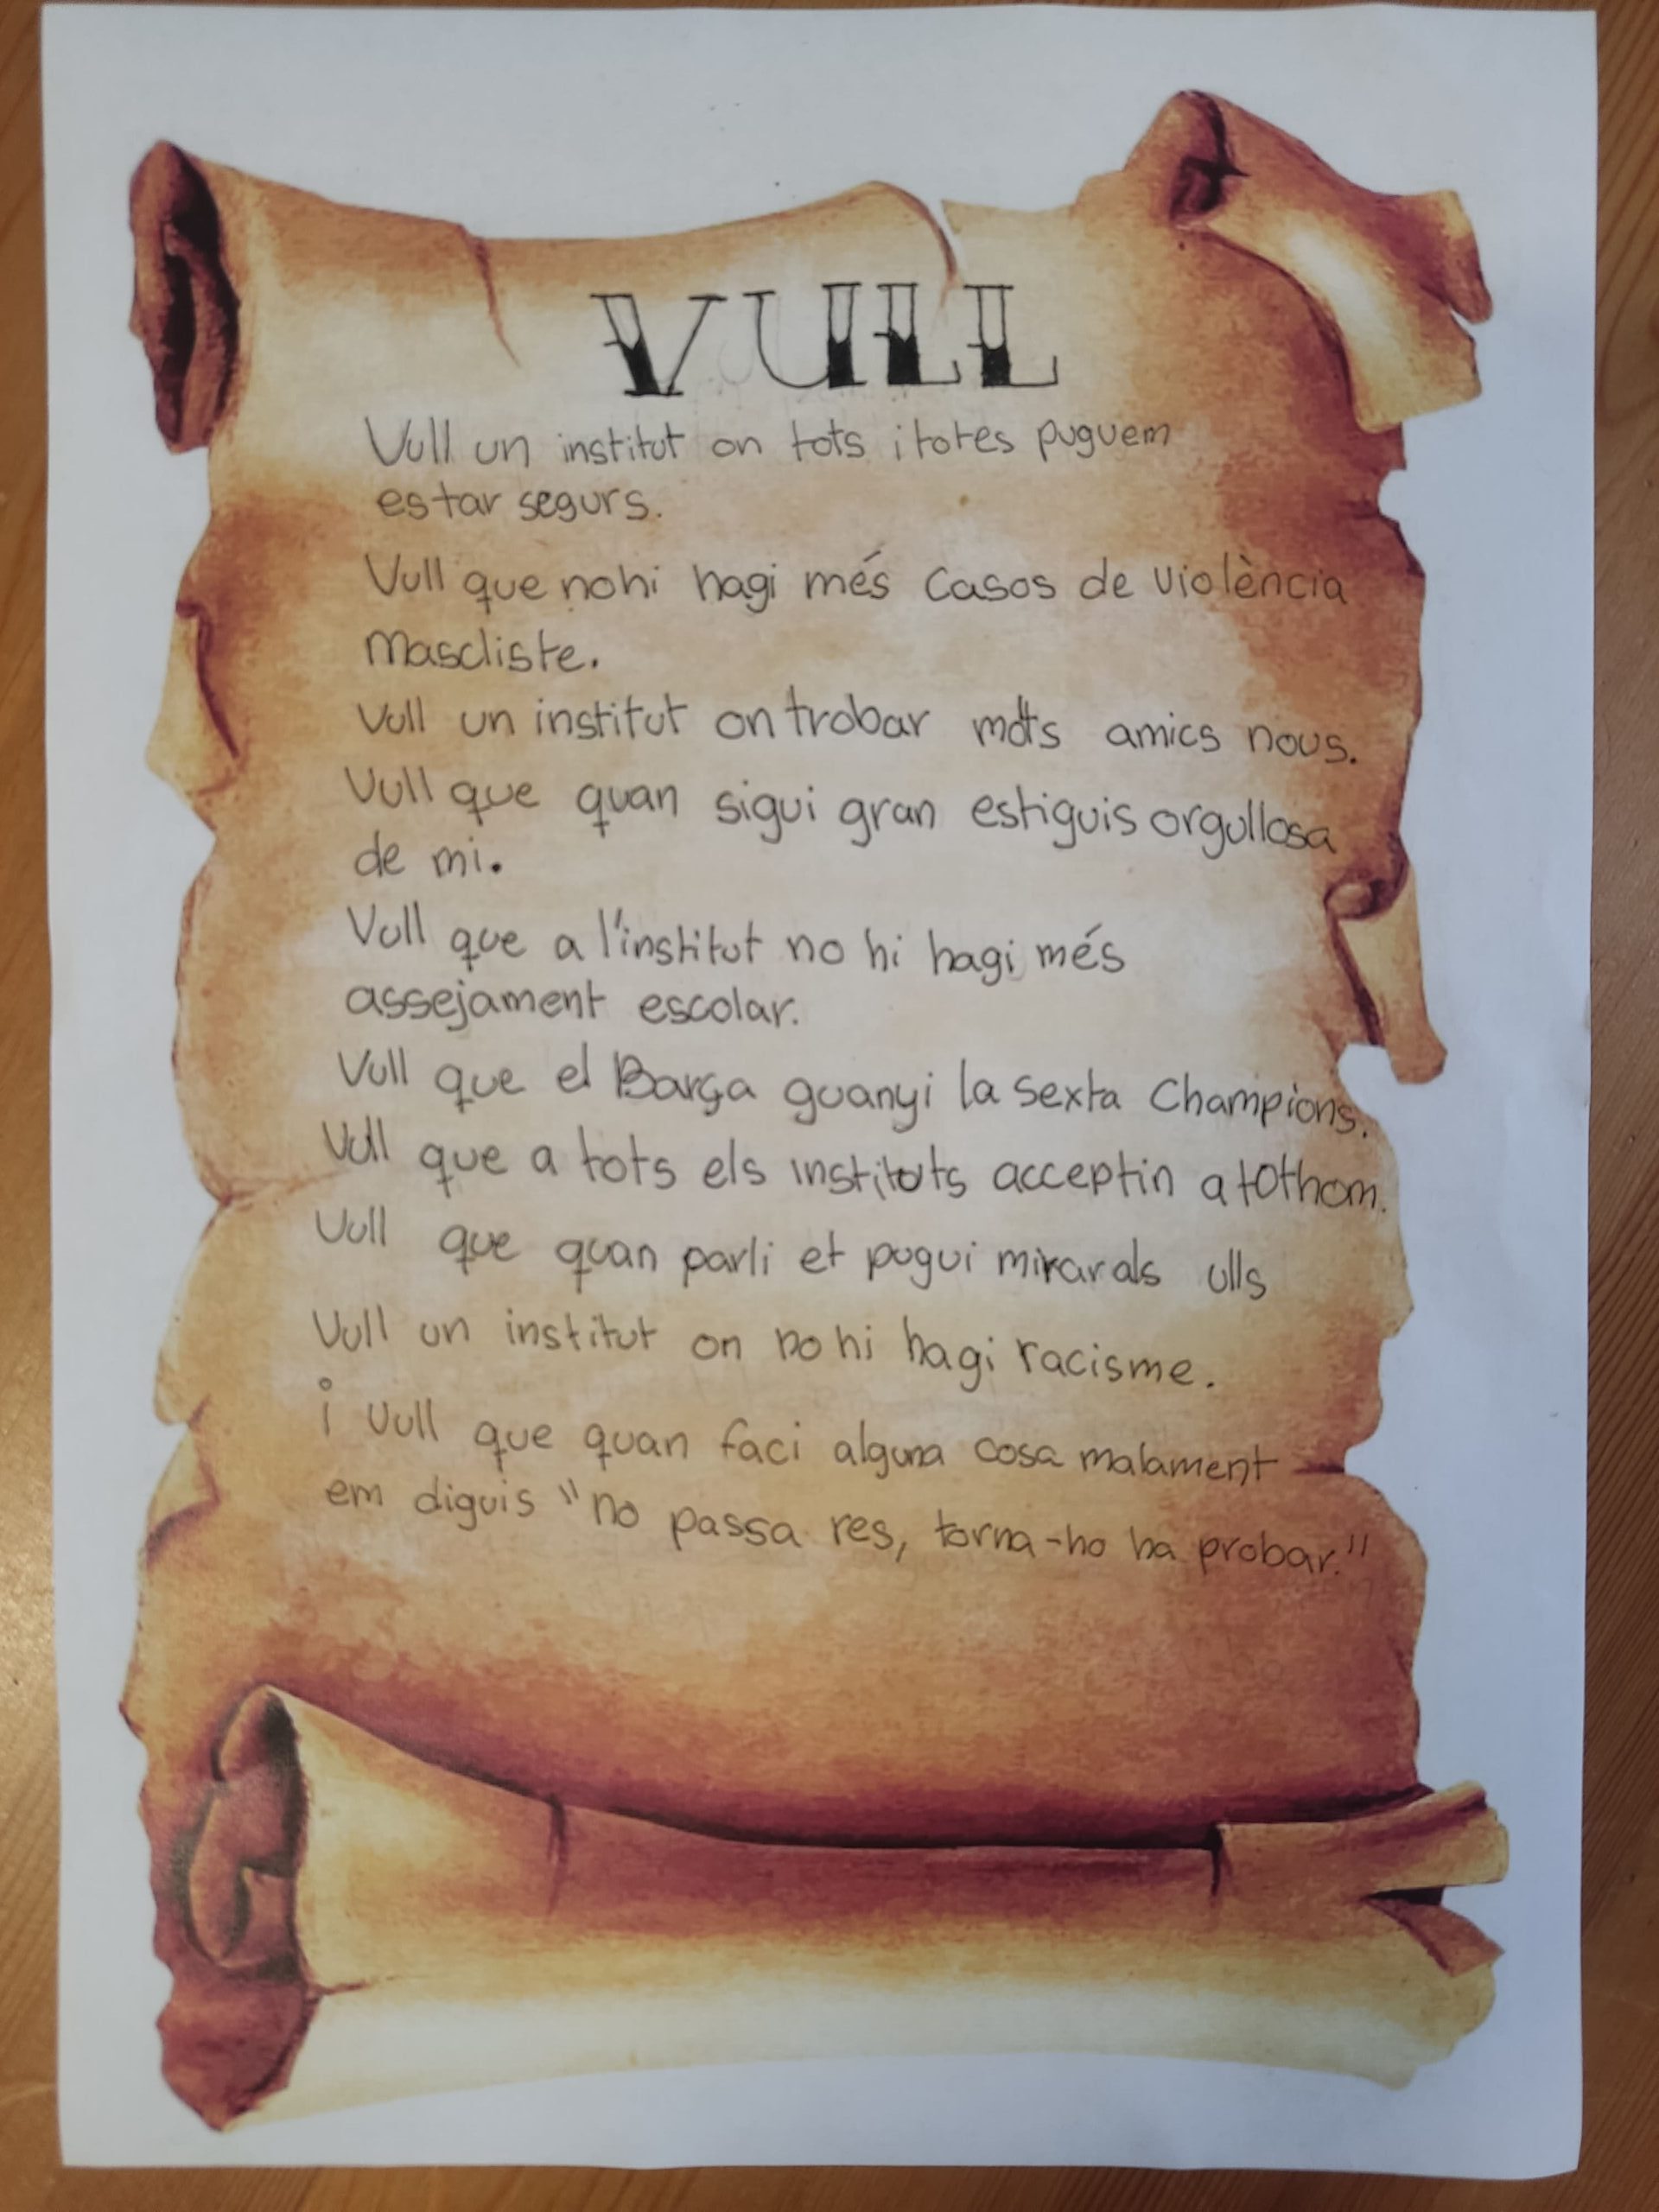 VULL
Vull un institut on tots i totes puguem
estar segurs.
Vull que no hi hagi més casos de violència
Mascliste.
Vull un institut on trobar molts amics nous.
Vull que quan sigui gran estiguis orgullosa
de mi.
Vull que a l'institut no hi hagi més
assejament escolar.
Vull que el Barça guanyi la sexta Champions.
Vull que a tots els instituts acceptin a tothom.
Vull que quan parli et pugui mirar als ulls
Vull un institut on no hi hagi racisme.
i vull que quan faci alguna cosa malament
em diguis "no passa res, torna-ho ha probar."